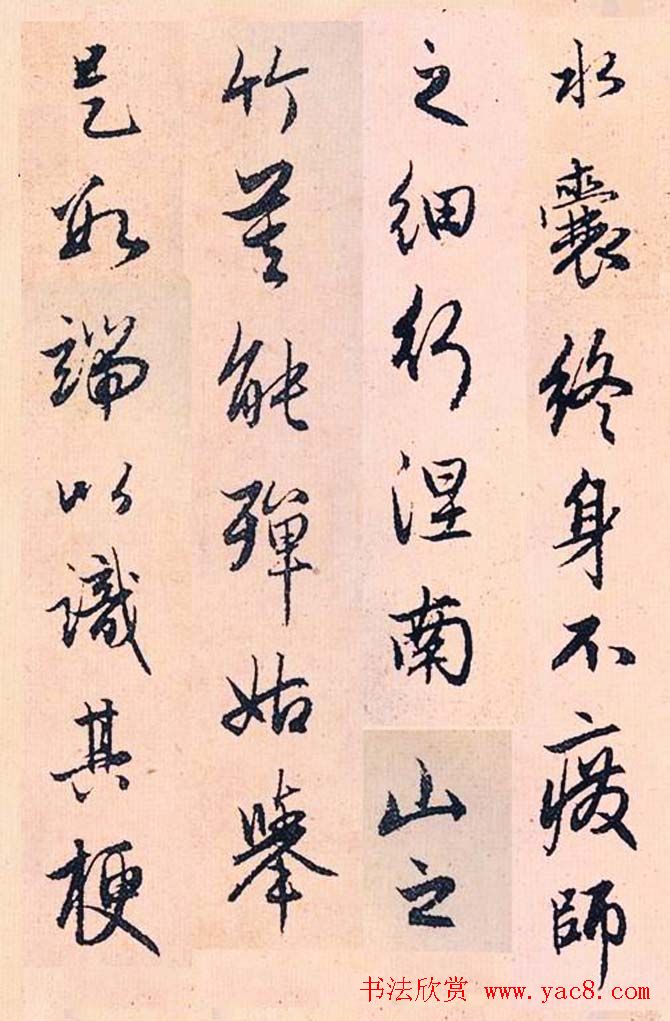 水囊終身不廢師
之細行涅南山之
竹莫能殫姑舉
是數端以識其梗
书法欣赏 www.yac8.com